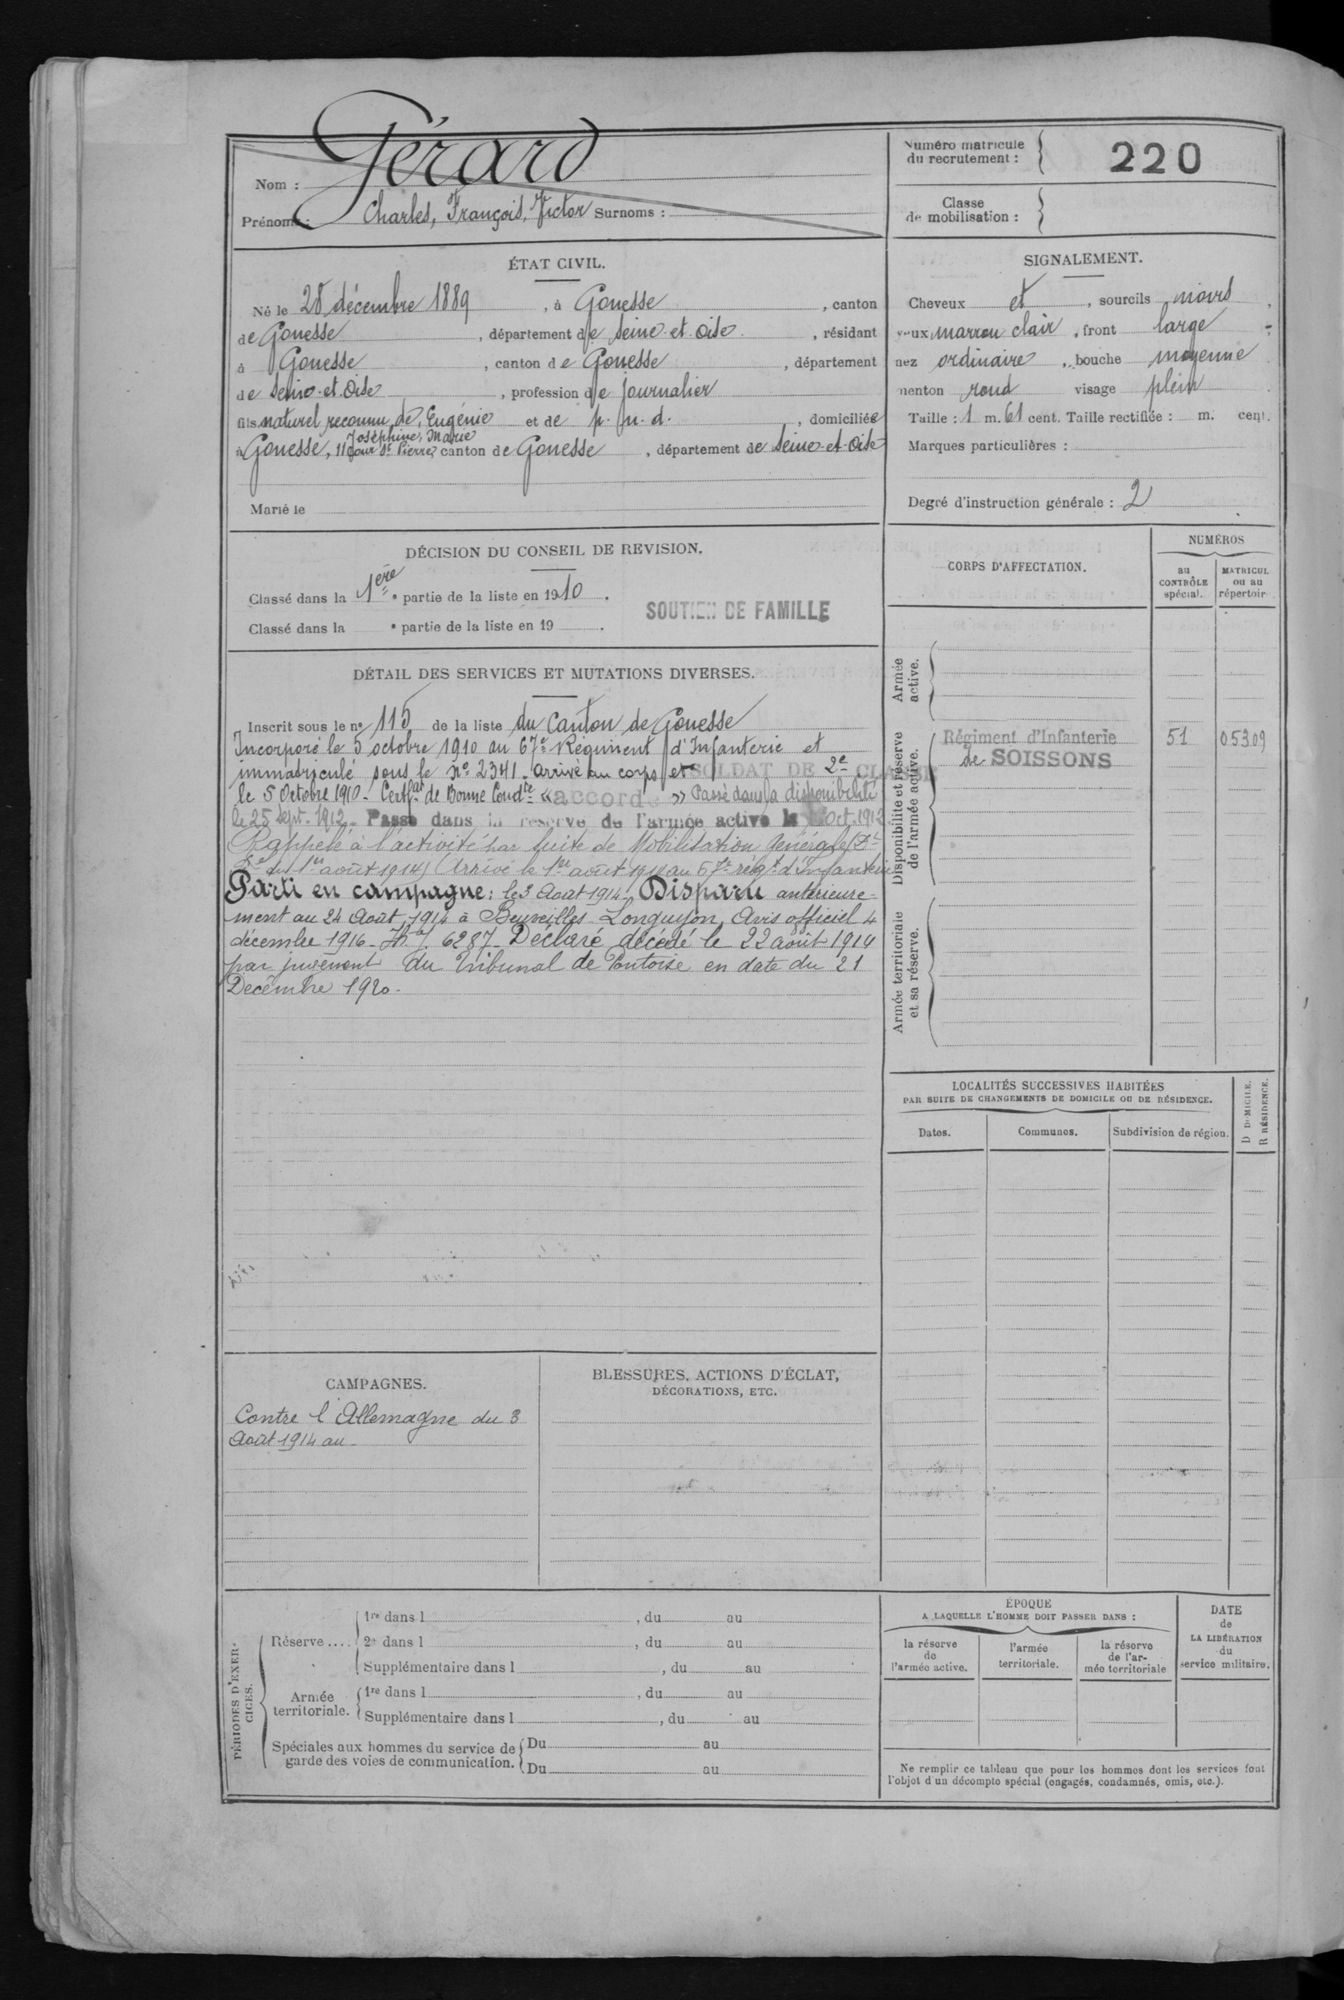 Nom : Gérard
Prénoms : Charles, François, Victor Surnoms :
Numéro matricule
du recrutement : 220
Classe
de mobilisation :
ÉTAT CIVIL.
Né le 28 décembre 1889, à Gonesse, canton
de Gonesse, département de Seine-et-Oise, résidant
à Gonesse, canton de Gonesse, département
de Seine-et-Oise, profession de journalier
fils naturel reconnu de Eugénie et de p. n. d., domiciliée
Joséphine, Marie
à Gonesse, 11 Cour St Pierre, canton de Gonesse, département de Seine-et-Oise
Marié le
SIGNALEMENT.
Cheveux et, sourcils noirs,
yeux marron clair, front large,
nez ordinaire, bouche moyenne
menton rond visage plein
Taille : 1 m. 61 cent. Taille rectifiée : m. cent.
Marques particulières :
Degré d'instruction générale : 2
DÉCISION DU CONSEIL DE REVISION.
Classé dans la 1ère partie de la liste en 1910.
Classé dans la e partie de la liste en 19 .
SOUTIEN DE FAMILLE
DÉTAIL DES SERVICES ET MUTATIONS DIVERSES.
Inscrit sous le no 115 de la liste du Canton de Gonesse
Incorporé le 5 octobre 1910 au 67e Régiment d'Infanterie et
immatriculé sous le No 2341. arrivé au corps et SOLDAT DE 2e CLASSE
le 5 Octobre 1910 - Certfat de Bonne Condte « accordé » Passé dans la disponibilité
le 25 Sept. 1912. Passé dans la réserve de l'armée active le Oct. 1912.
Rappelé à l'activité par suite de Mobilisation Générale (Dt
du 1er août 1914) Arrivé le 1er août 1914 au 67e régt d'Infanterie
Parti en campagne : le 3 Août 1914. Disparu antérieure-
ment au 24 Août 1914 à Beuveilles Longuyon Avis officiel 4
décembre 1916 - 6287 - Déclaré décédé le 22 août 1914
par jugement du Tribunal de Pontoise en date du 21
Décembre 1920.
CORPS D'AFFECTATION.
NUMÉROS
au
CONTRÔLE
spécial.
MATRICUL
ou au
répertoir
Armée
active.
Disponibilité et réserve
de l'armée active.
Régiment d'Infanterie 51 05309
de SOISSONS
Armée territoriale
et sa réserve.
LOCALITÉS SUCCESSIVES HABITÉES
PAR SUITE DE CHANGEMENTS DE DOMICILE OU DE RÉSIDENCE.
Dates.
Communes.
Subdivision de région.
D DOMICILE.
R RÉSIDENCE.
CAMPAGNES.
Contre l'Allemagne du 3
Août 1914 au
BLESSURES, ACTIONS D'ÉCLAT,
DÉCORATIONS, ETC.
PÉRIODES D'EXER-
CICES.
Réserve ....
1re dans l , du au
2e dans l , du au
Supplémentaire dans l , du au
Armée
territoriale.
1re dans l , du au
Supplémentaire dans l , du au
Spéciales aux hommes du service de
garde des voies de communication.
Du au
Du au
ÉPOQUE
A LAQUELLE L'HOMME DOIT PASSER DANS :
la réserve
de
l'armée active.
l'armée
territoriale.
la réserve
de l'ar-
mée territoriale
DATE
de
LA LIBÉRATION
du
service militaire.
Ne remplir ce tableau que pour les hommes dont les services font
l'objet d'un décompte spécial (engagés, condamnés, omis, etc.).